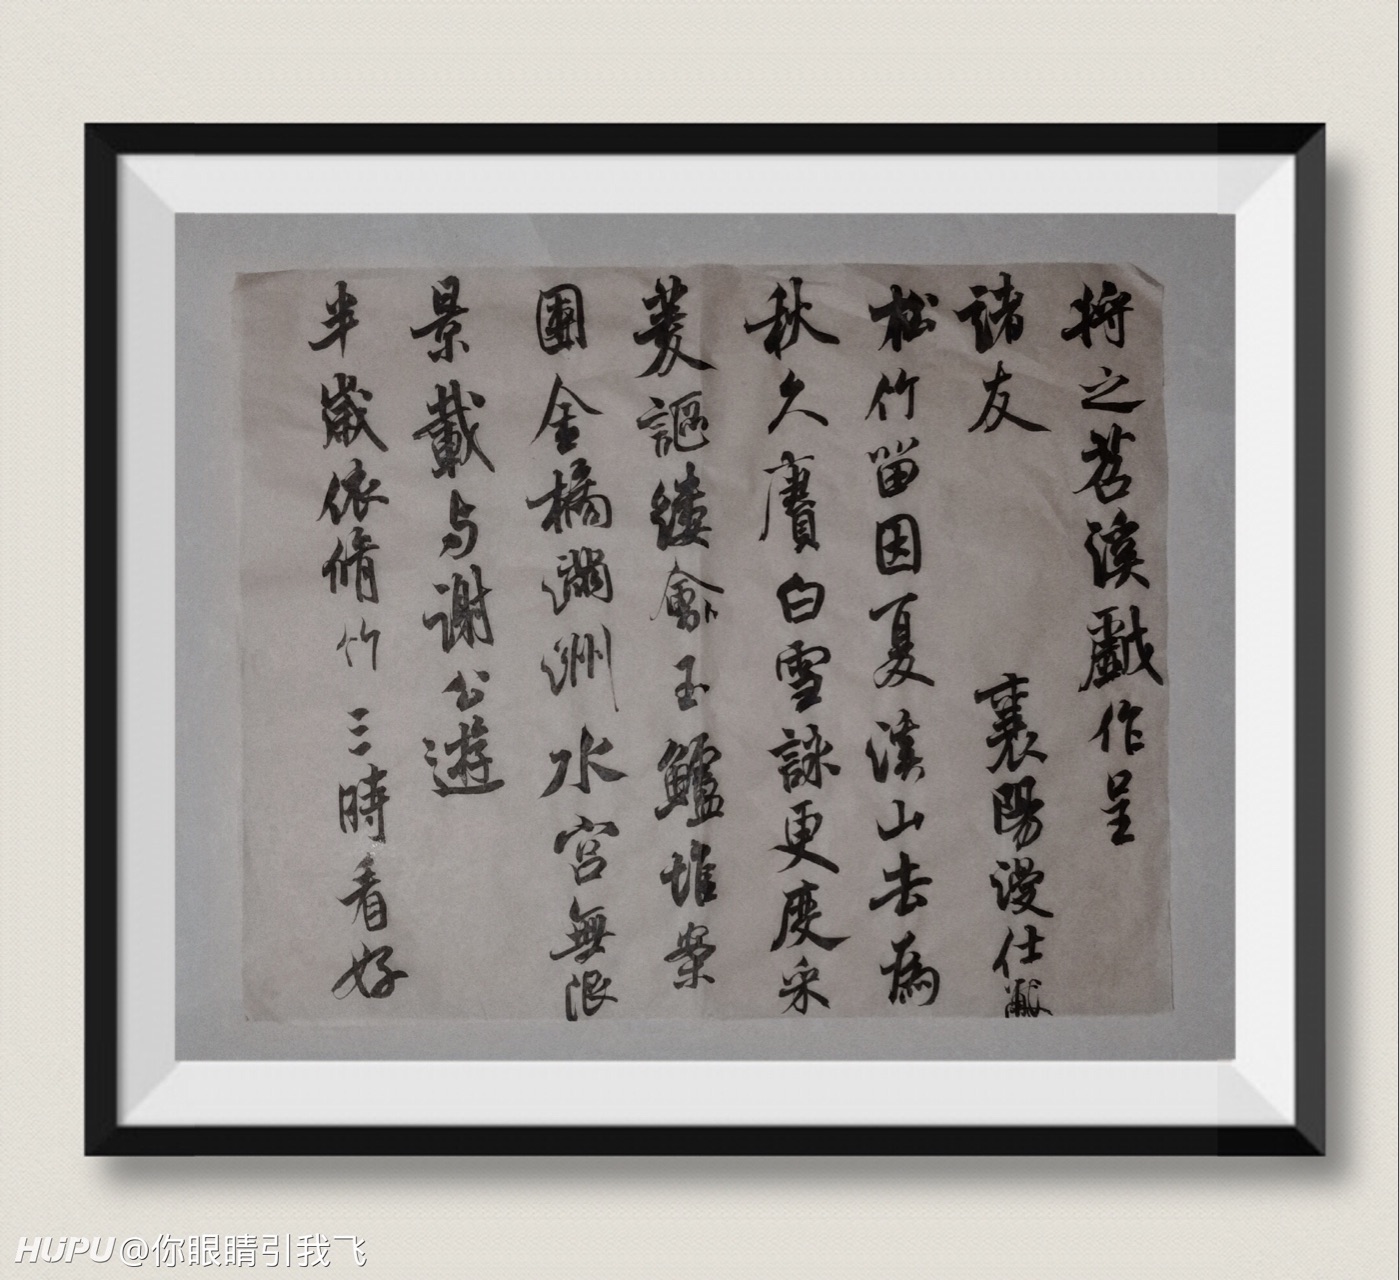 将之苕溪戲作呈
諸友
襄陽漫仕黻
松竹留因夏溪山去為
秋久賡白雪詠更度采
菱謳縷鱠玉鱸堆案
團金橘滿洲水宮無限
景載与謝公遊
半歲依脩竹三時看好
HUPU@你眼睛引我飞